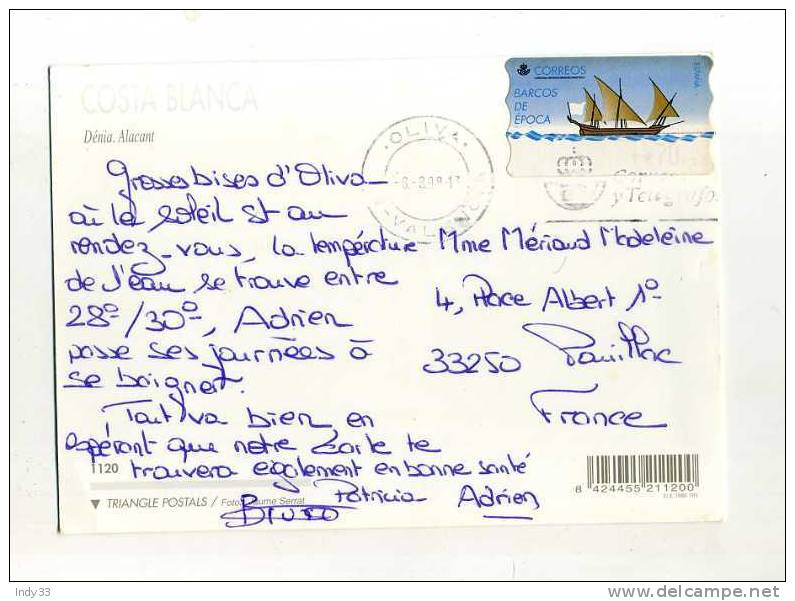 COSTA BLANCA
Dénia. Alacant
CORREOS
ESPAÑA
BARCOS
DE
ÉPOCA
OLIVA
Correos
y Telégrafos
Grosses bises d'Oliva
où le soleil st au
rendez-vous, la température
de l'eau se trouve entre
28°/30°, Adrien
passe ses journées à
se baigner.
Tout va bien, en
espérant que notre carte te
trouvera également en bonne santé
Patricia Adrien
Bruno
Mme Mériaud Madeleine
4, Place Albert 1°
33250 Pauillac
France
1120
▼ TRIANGLE POSTALS / Foto: Jaume Serrat
8 424455 211200
Indy33
delcampe.net